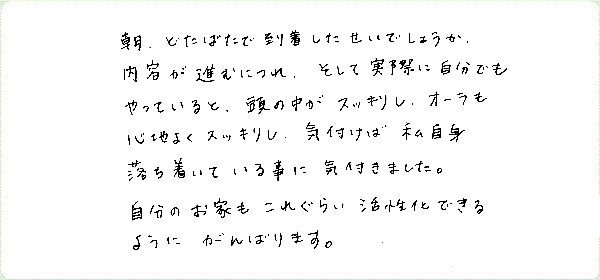 朝、どたばたで到着したせいでしょうか、
内容が進むにつれ、そして実際に自分でも
やっていると、頭の中がスッキリし、オーラも
心地よくスッキリし、気付けば私自身
落ち着いている事に気付きました。
自分のお家もこれぐらい活性化できる
ようにがんばります。